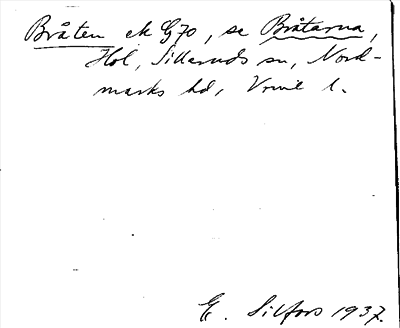 Bråten ek G70, se Bråtarna,
Hol, Silleruds sn, Nord-
marks hd, Vrml l.
E. Silfors 1937.